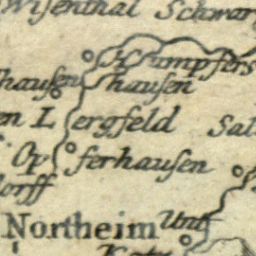 Wiſenthal Schwar
Krumpfers
hauſen
hauſen
en Lergfeld Sal
Opferhauſen
dorff
Northeim Unt